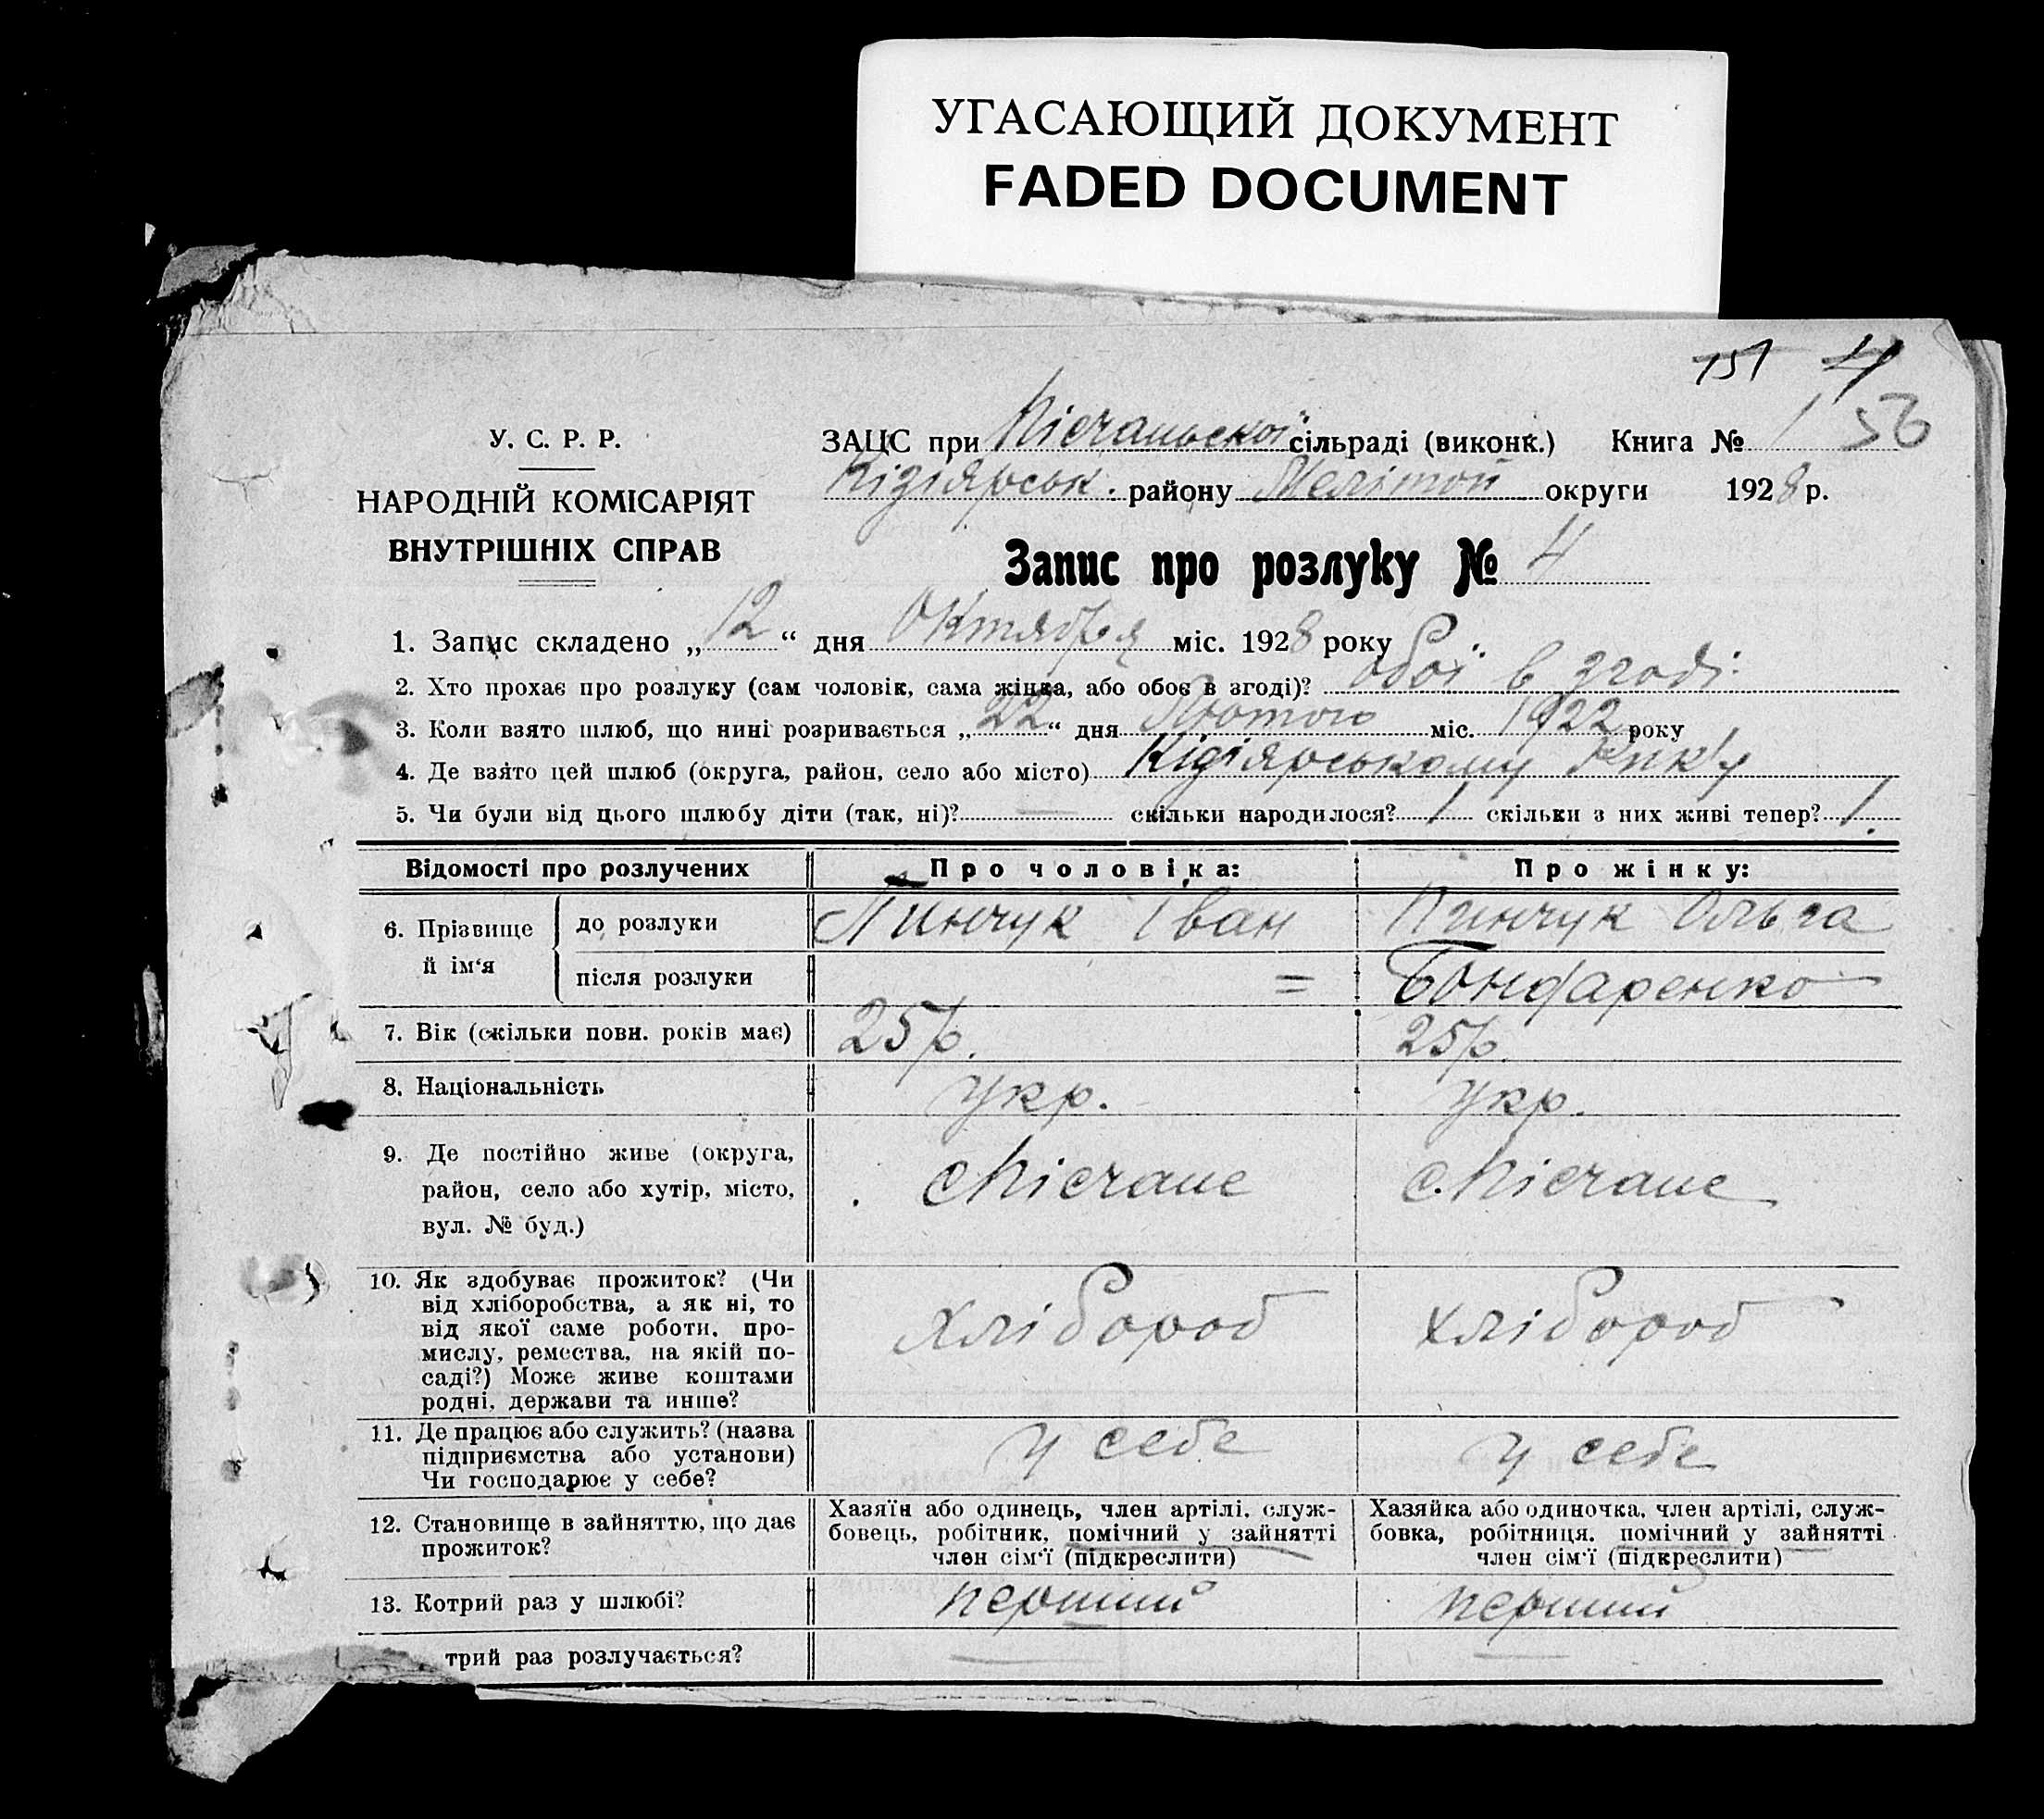 УГАСАЮЩИЙ ДОКУМЕНТ
FADED DOCUMENT
151 4
56
У. С. Р. Р.
НАРОДНІЙ КОМІСАРІЯТ
ВНУТРІШНІХ СПРАВ
ЗАЦС при Пісчанської сільраді (виконк.) Книга № 1
Кізіярськ. району Мелітоп округи 1928 р.
Запис про розлуку № 4
1. Запис складено „12“ дня Октября міс. 1928 року
2. Хто прохає про розлуку (сам чоловік, сама жінка, або обоє в згоді)? обоі в згоді
3. Коли взято шлюб, що нині розривається „22“ дня Лютого міс. 1922 року
4. Де взято цей шлюб (округа, район, село або місто) Кізіярському
5. Чи були від цього шлюбу діти (так, ні)? — скільки народилося? 1 скільки з них живі тепер? 1.
Відомості про розлучених Про чоловіка: Про жінку:
6. Прізвище й ім‘я до розлуки Пинчук Іван Пинчук Ольга
після розлуки = Бондаренко
7. Вік (скільки повн. років має) 25 р. 25 р.
8. Національність укр. укр.
9. Де постійно живе (округа,
район, село або хутір, місто,
вул. № буд.)
с Пісчане с. Пісчане
10. Як здобуває прожиток? (Чи
від хліборобства, а як ні, то
від якої саме роботи, про-
мислу, ремества, на якій по-
саді?) Може живе коштами
родні, держави та инше?
хлібороб хлібороб
11. Де працює або служить? (назва
підприємства або установи)
Чи господарює у себе?
у себе у себе
12. Становище в зайняттю, що дає
прожиток?
Хазяїн або одинець, член артілі, служ-
бовець, робітник, помічний у зайнятті
член сім‘ї (підкреслити)
Хазяйка або одиночка, член артілі, служ-
бовка, робітниця, помічний у зайнятті
член сім‘ї (підкреслити)
13. Котрий раз у шлюбі? перший перший
трий раз розлучається? — —